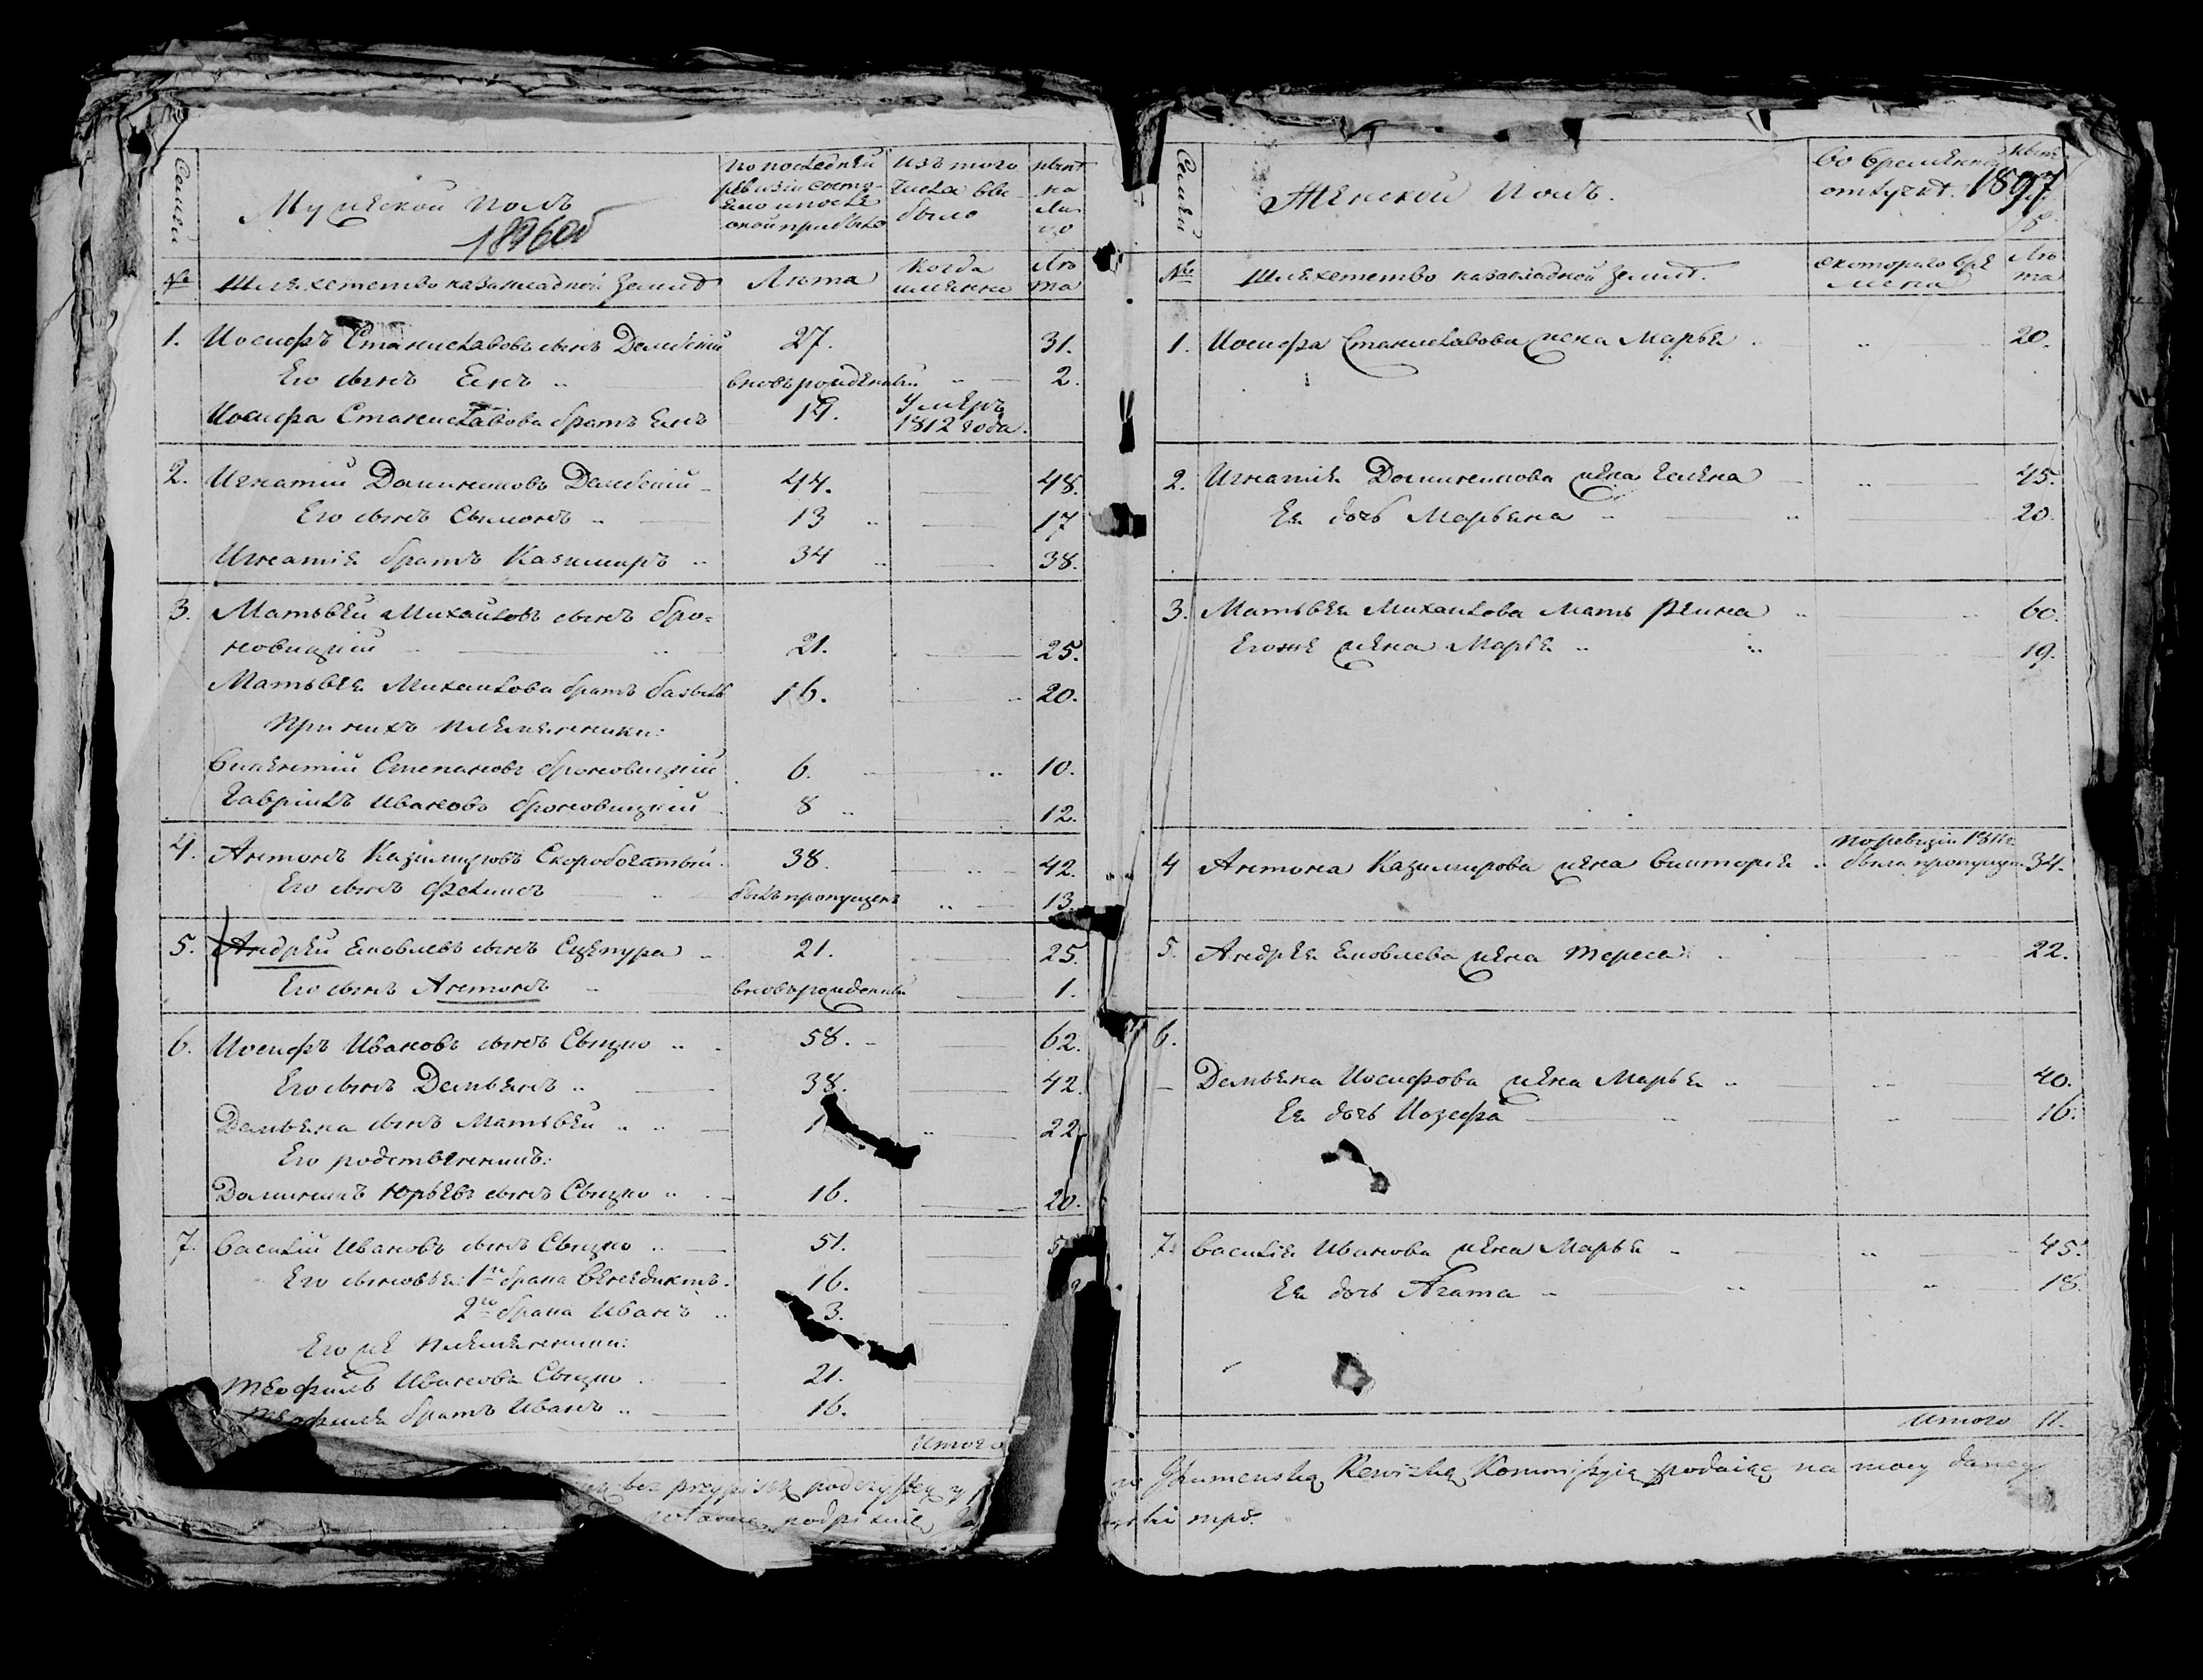 Семьи
Мужеской полъ
по последней
ревизіи состо-
яло и после
оной прибыло
Изъ того
числа вы-
было
ныне
на
ли-
цо
№
Шляхетство на закладной земле
Лета
Когда
именно
Ле
та
1. Иосифъ Станиславовъ сынъ Дембскій 27. 31.
Его сынъ Янъ вновьрожденный 2.
Иосифа Станиславова братъ Янъ 19. Умеръ
1812 года.
2. Игнатій Доминиковъ Дембскій 44. 48.
Его сынъ Сымонъ 13 17
Игнатія братъ Казимиръ 34 38.
3. Матьвей Михайловъ сынъ Бро=
новицкій 21. 25.
Матьвея Михайлова братъ Базыль 16. 20.
При нихъ племянники:
Викентій Степановъ Броновицкій 6. 10.
Гавріилъ Ивановъ Броновицкій 8 12.
4. Антонъ Казимировъ Скоробогатый 38. 42.
Его сынъ Феликсъ былъ пропущенъ 13.
5. Андрей Яковлевъ сынъ Сцепура 21. 25.
Его сынъ Антонъ вновьрожденный 1.
6. Иосифъ Ивановъ сынъ Сыцко 58. 62.
Его сынъ Демьянъ 38. 42.
Демьяна сынъ Матьвей 22.
Его родственникъ:
Доминикъ Юрьевъ сынъ Сыцко 16. 20.
7. Василій Ивановъ сынъ Сыцко 51.
Его сыновья: 1го брака Венедиктъ. 16.
2го брака Иванъ 3.
Его же племянники:
Теофиль Иванова Сыцко 21.
Теофиля братъ Иванъ 16.
Итого
bez przypisku podczystey y
podpisuię
Семьи
Женской полъ.
Во временной
отлучке.
1897
№
Шляхетство на закладной земле.
с котораго вре
мени
Ле
та
1. Иосифа Станиславова жена Марья 20.
2. Игнатія Доминикова жена Елена 45.
Ея дочь Марьяна 20.
3. Матьвея Михайлова мать Реина 60.
Егоже жена Марья 19.
по ревизіи 1811г
4 Антона Казимирова жена Викторія была пропущен. 34.
5. Андрея Яковлева жена Тереса 22.
6.
Демьяна Иосифова жена Марья 40.
Ея дочь Иозефа 16.
7. Василія Иванова жена Марья 45.
Ея дочь Агата 18.
Итого 11.
w Jhumenską Rewizką Kommissyią podaiąc na mocy daney
mpd.